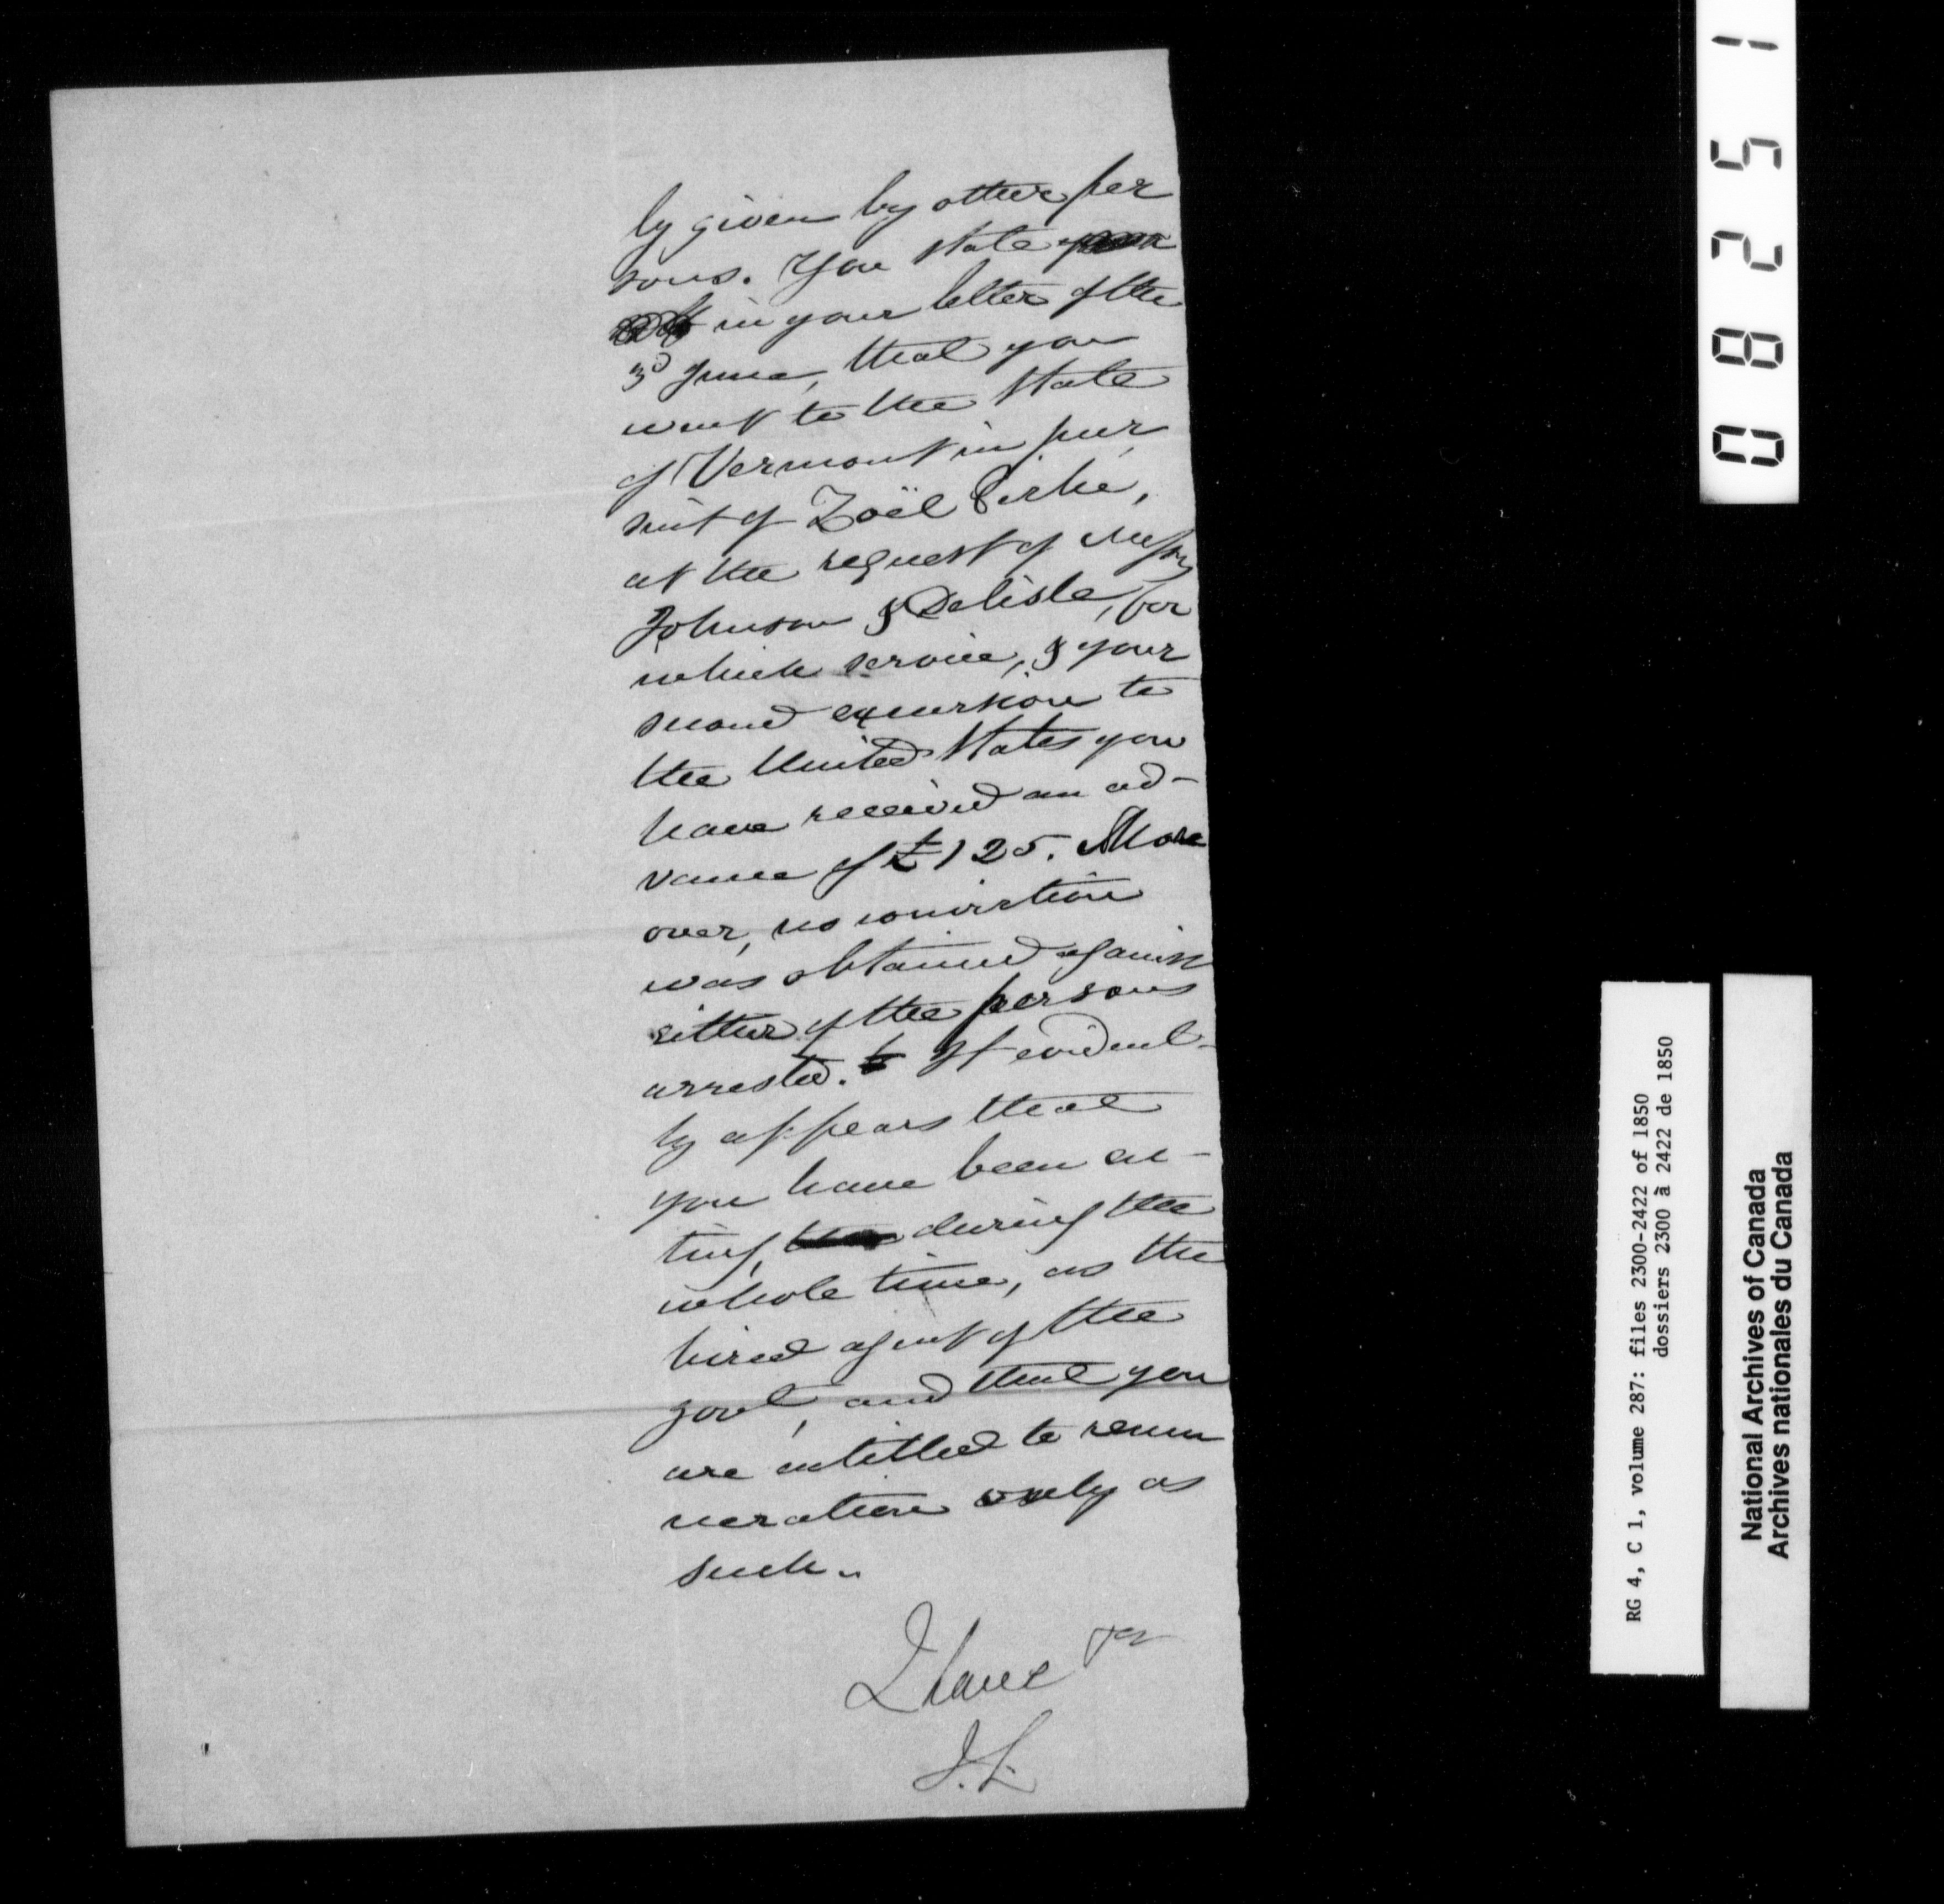 ly given by other per
sons. You state
in your letter of the
3d June, that you
went to the State
of Vermont in pur
suit of Zoël Pirhe,
at the request of Messrs
Johnson & Delisle, for
which service, & your
second excursion to
the United States you
have received an ad-
vance of £125. More
over, no conviction
was obtained against
either of the persons
arrested. It evident-
ly appears that
you have been ac-
ting, during the
whole time, as the
hired agent of the
govt, and that you
are entitled to remu
neration only as
such.
I have &c
J.L.
08251
RG 4, C 1, volume 287: files 2300-2422 of 1850
dossiers 2300 à 2422 de 1850
National Archives of Canada
Archives nationales du Canada